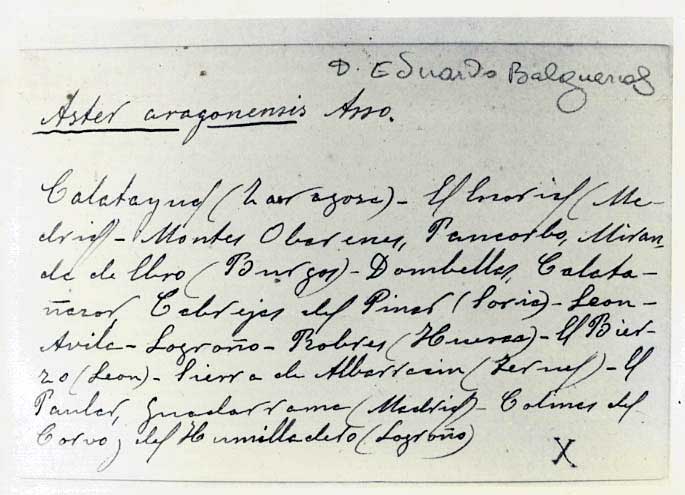 D. Eduardo Balguerias
Aster aragonensis Asso.
Calatayud (Zaragoza) - El Escorial (Ma-
drid) - Montes Obarenes, Pancorbo, Miran-
da de Ebro (Burgos) - Dombellas, Calata-
ñazor, Cabrejas del Pinar (Soria) - Leon -
Avila - Logroño - Robres (Huesca) - El Bier-
zo (Leon) - Sierra de Albarracin (Teruel) - El
Paular, Guadarrama (Madrid) - Colinas del
Corvo y del Humilladero (Logroño)
X